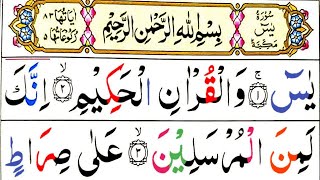 سُورَةُ يٰسٓ مَكِّيَّةٌ
بِسْمِ اللّٰهِ الرَّحْمٰنِ الرَّحِيْمِ
اٰيَاتُهَا ٨٣ رُكُوْعَاتُهَا ٥
يٰسٓ ۚ ﴿١﴾ وَالْقُرْاٰنِ الْحَكِيْمِ ۙ ﴿٢﴾ اِنَّكَ
لَمِنَ الْمُرْسَلِيْنَ ۙ ﴿٣﴾ عَلٰى صِرَاطٍ